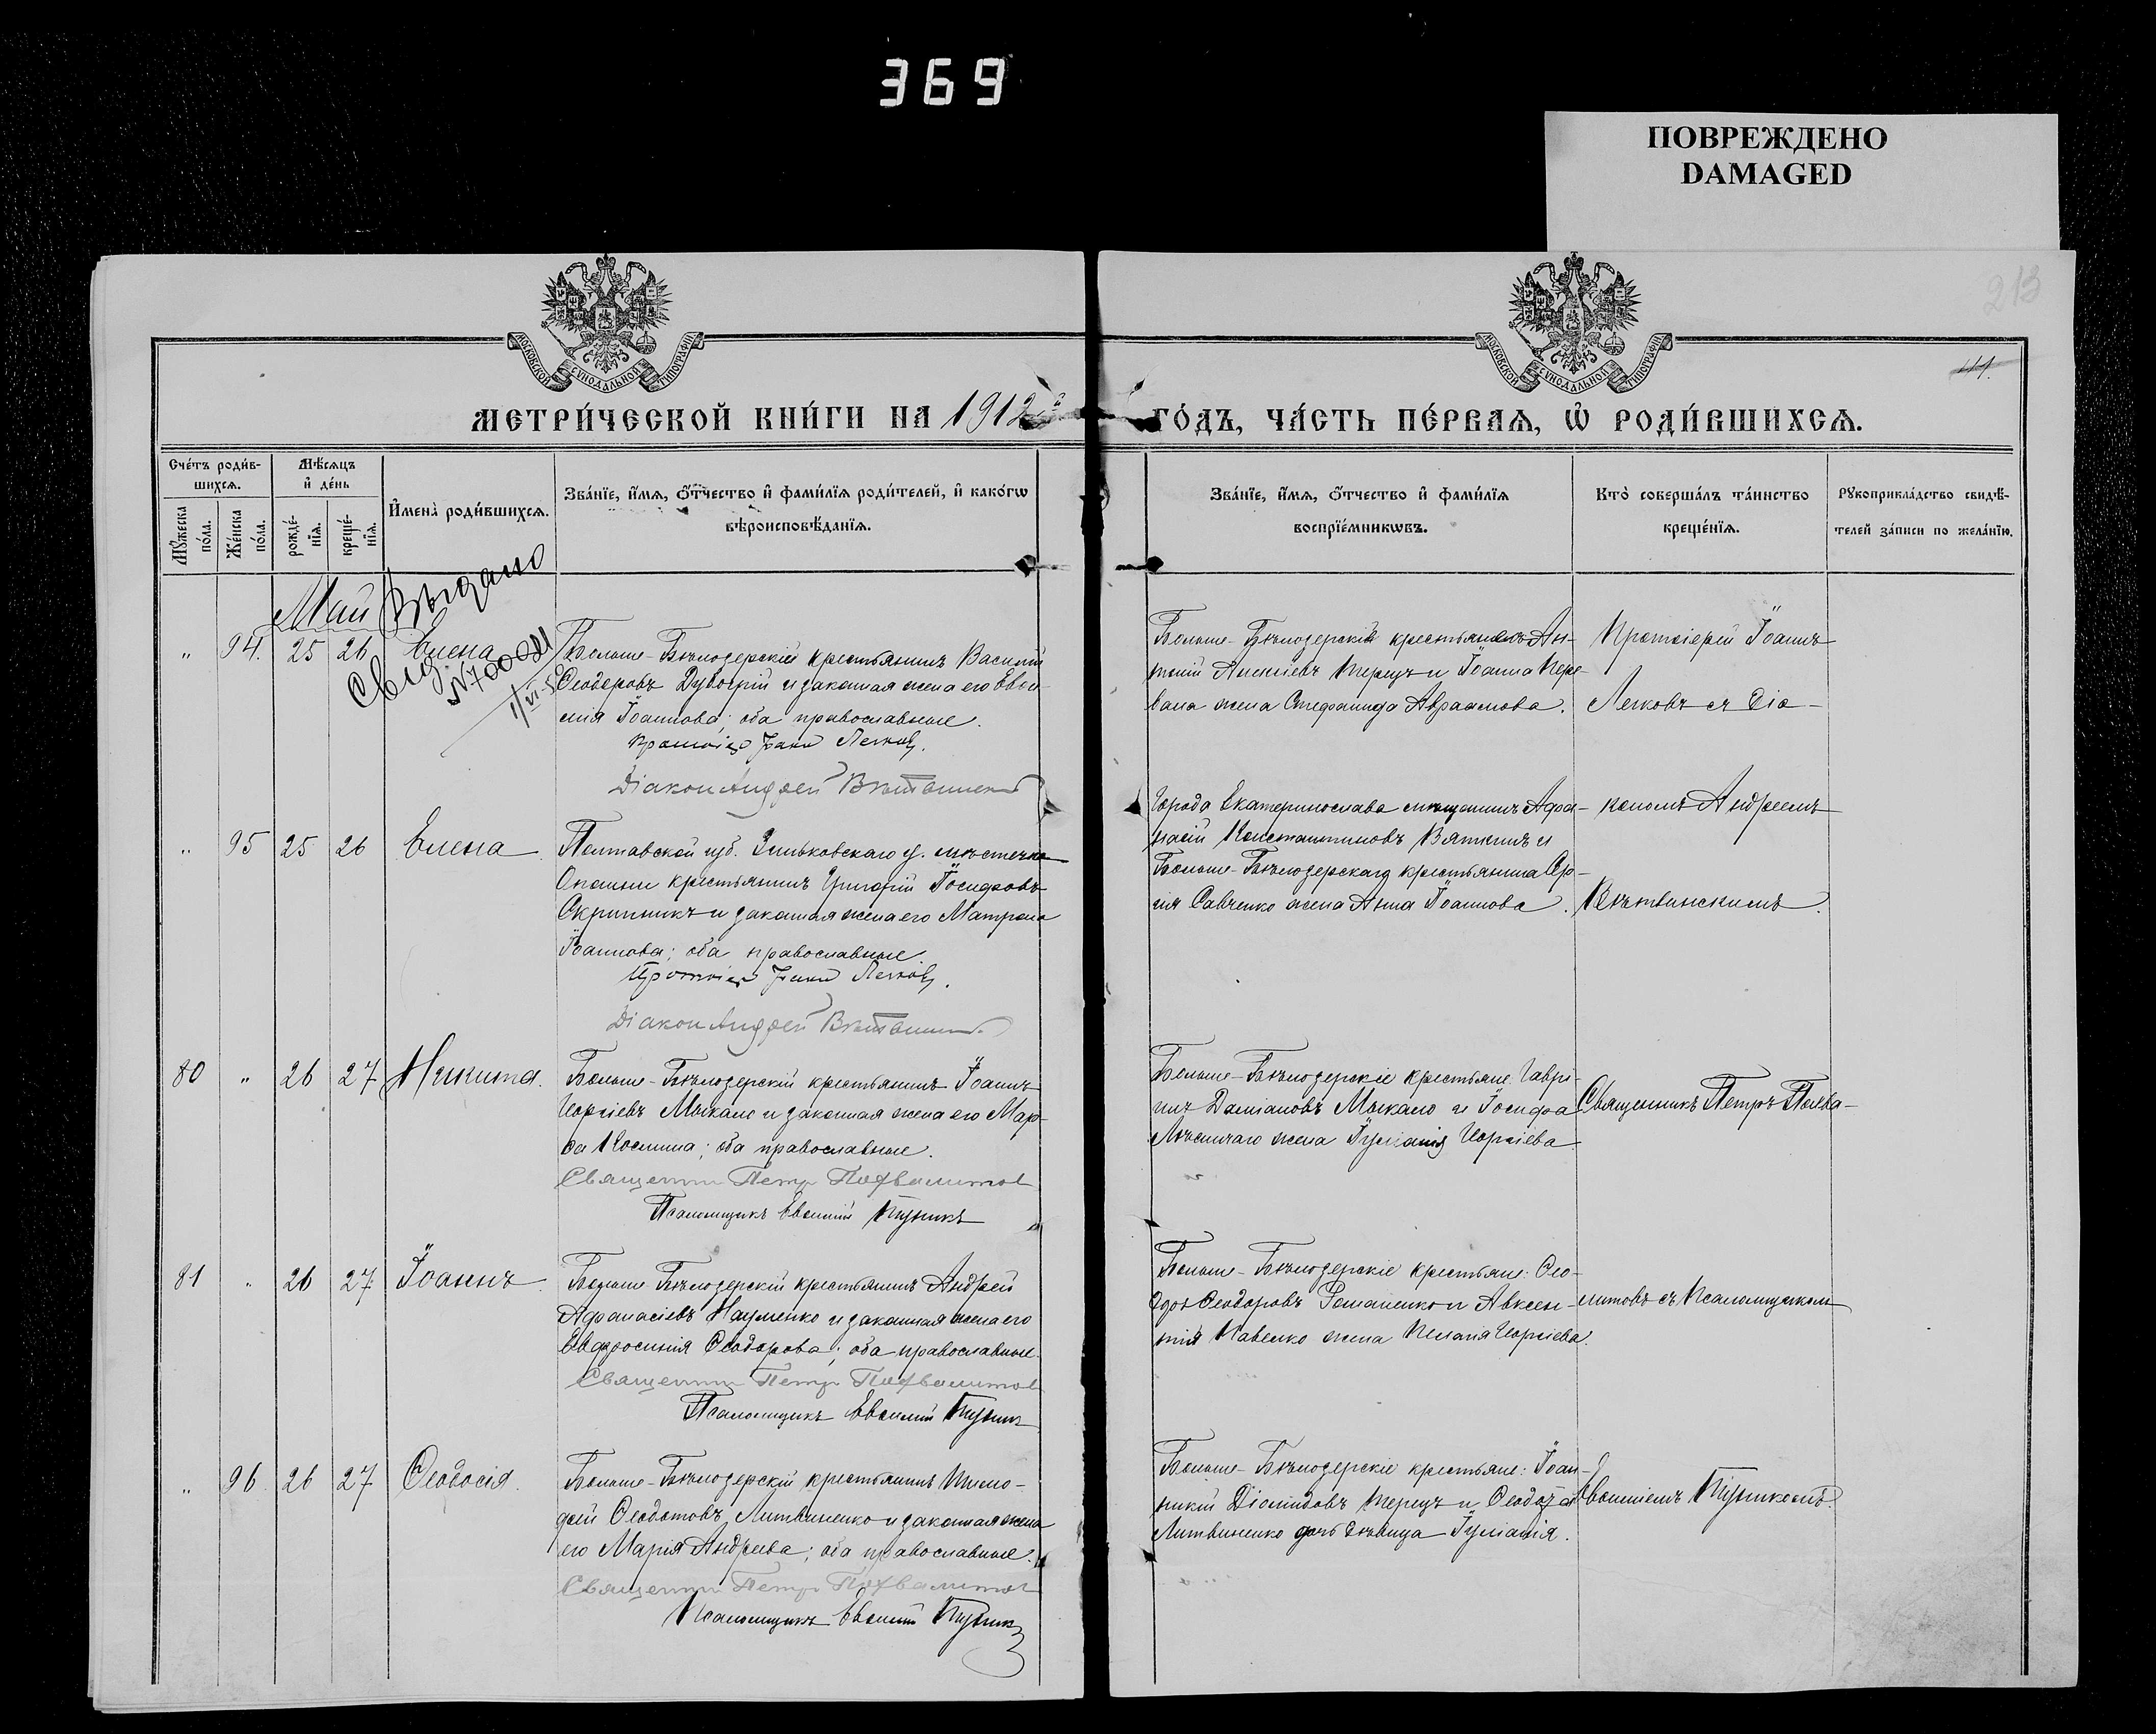 369
ПОВРЕЖДЕНО
DAMAGED
213
МОСКОВСКОЙ СѴНОДАЛЬНОЙ ТИПОГРАФІИ
МОСКОВСКОЙ СѴНОДАЛЬНОЙ ТИПОГРАФІИ
МЕТРИ́ЧЕСКОЙ КНИ́ГИ НА 1912й
ГО́ДЪ, ЧА́СТЬ ПЕ́РВАѦ, Ѡ РОДИ́ВШИХСѦ.
Сче́тъ роди́в-
шихсѧ.
Мѣ́сѧцъ
и҆ де́нь
Мꙋ́жеска
по́ла.
Же́нска
по́ла.
рожде́-
нїѧ.
креще́-
нїѧ.
И҆мена̀ роди́вшихсѧ.
Зва́нїе, и҆́мѧ, ѻ҆́тчество и҆ фами́лїѧ роди́телей, и҆ како́гѡ
вѣроисповѣ́данїѧ.
Зва́нїе, и҆́мѧ, ѻ҆́тчество и҆ фами́лїѧ
воспрїе́мникѡвъ.
Кто̀ соверша́лъ та́инство
креще́нїѧ.
Рꙋкоприкла́дство свидѣ́-
телей за́писи по жела́нїю.
Май
Выдано
Свид.
" 94. 25 26 Елена
Больше-Бѣлозерскій крестьянинъ Василій
Ѳеодоровъ Дубогрій и законная жена его Евѳи-
мія Іоаннова; оба православные.
Протоіер Іоанн Легков.
Діакон Андрей
Больше-Бѣлозерскій крестьянинъ Ан-
тоній Алексіевъ Терецъ и Іоанна Пере-
вала жена Стефанида Авраамова.
Протоіерей Іоаннъ
Легковъ съ Діа-
" 95 25 26 Елена.
Полтавской губ. Зиньковскаго у. мѣстечка
Опошни крестьянинъ Григорій Іосифовъ
Скрипникъ и законная жена его Матрона
Іоаннова; оба православные.
Протоіер Іоанн Легков.
Діакон Андрей
Города Екатеринослава мѣщанинъ Афа-
насій Константиновъ Вяткинъ и
Больше-Бѣлозерскаго крестьянина Сер-
гія Савченко жена Анна Іоаннова.
кономъ Андреемъ
80 " 26 27 Никита.
Больше-Бѣлозерскій крестьянинъ Іоаннъ
Георгіевъ Мыкало и законная жена его Мар-
ѳа Космина; оба православные.
Священник Петр Похвалитов
Псаломщикъ Евѳимій Пузикъ
Больше-Бѣлозерскіе крестьяне: Гаврі-
илъ Даміановъ Мыкало и Іосифа
жена Іуліанія Георгіева.
Священникъ Петръ Похва-
81 " 26 27 Іоаннъ.
Больше-Бѣлозерскій крестьянинъ Андрей
Афанасіевъ Науменко и законная жена его
Евфросинія Ѳеодорова; оба православные.
Священник Петр Похвалитов
Псаломщикъ Евѳимій Пузикъ
Больше-Бѣлозерскіе крестьяне: Ѳео-
доръ Ѳеодоровъ Романенко и Авксен-
тія Павенко жена Пелагія Георгіева.
литовъ съ Псаломщикомъ
" 96 26 27 Ѳеодосія.
Больше-Бѣлозерскій крестьянинъ Тимо-
фей Ѳеодотовъ Литвиненко и законная жена
его Марія Андреева; оба православные.
Священник Петр Похвалитов
Псаломщикъ Евѳимій Пузикъ
Больше-Бѣлозерскіе крестьяне: Іоан-
никій Діомидовъ Терецъ и Ѳеодота
Литвиненко дочь дѣвица Іуліанія.
Евѳиміемъ Пузикомъ.